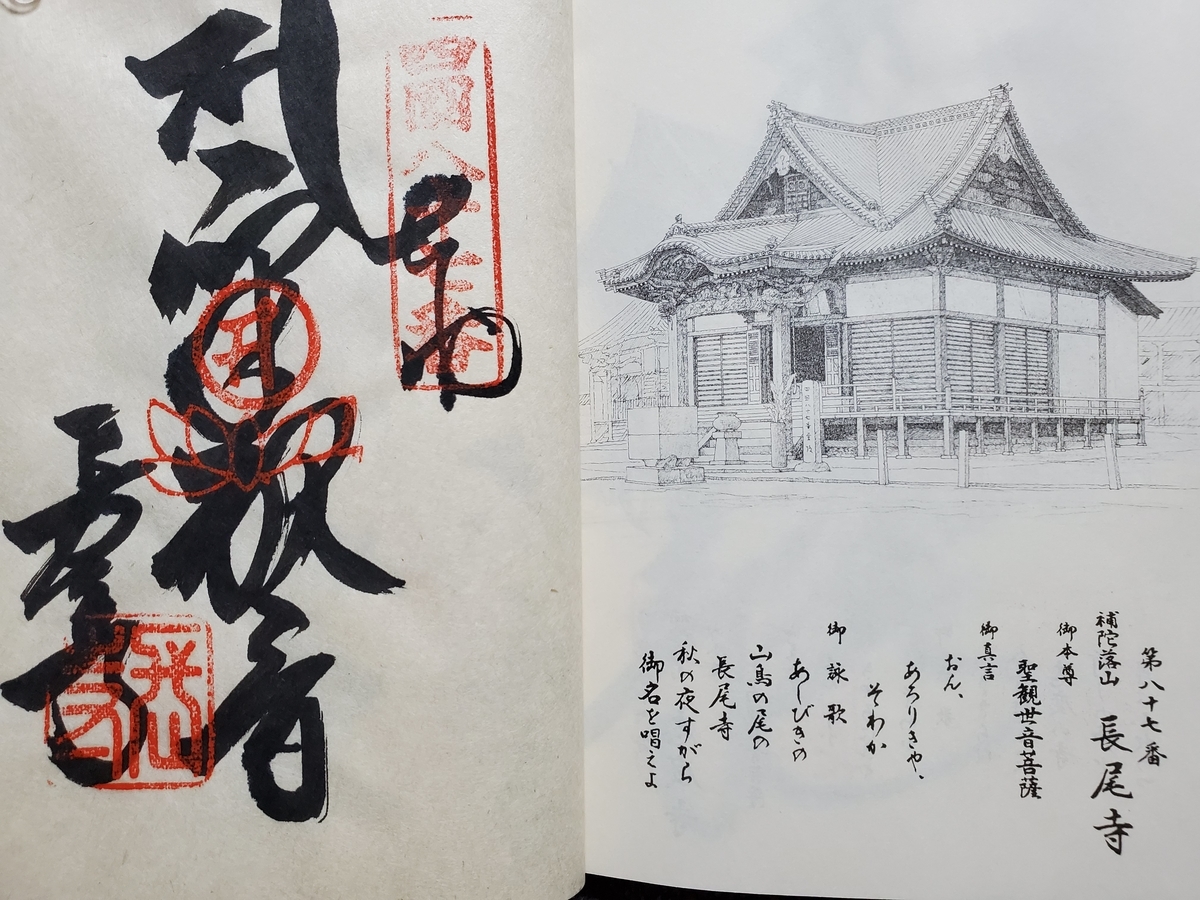 第八十七番
補陀落山 長尾寺
御本尊
聖観世音菩薩
御真言
おん、
あろりきや、
そわか
御詠歌
あしびきの
山鳥の尾の
長尾寺
秋の夜すがら
御名を唱えよ
四國八十七番
奉納
観音
長尾寺